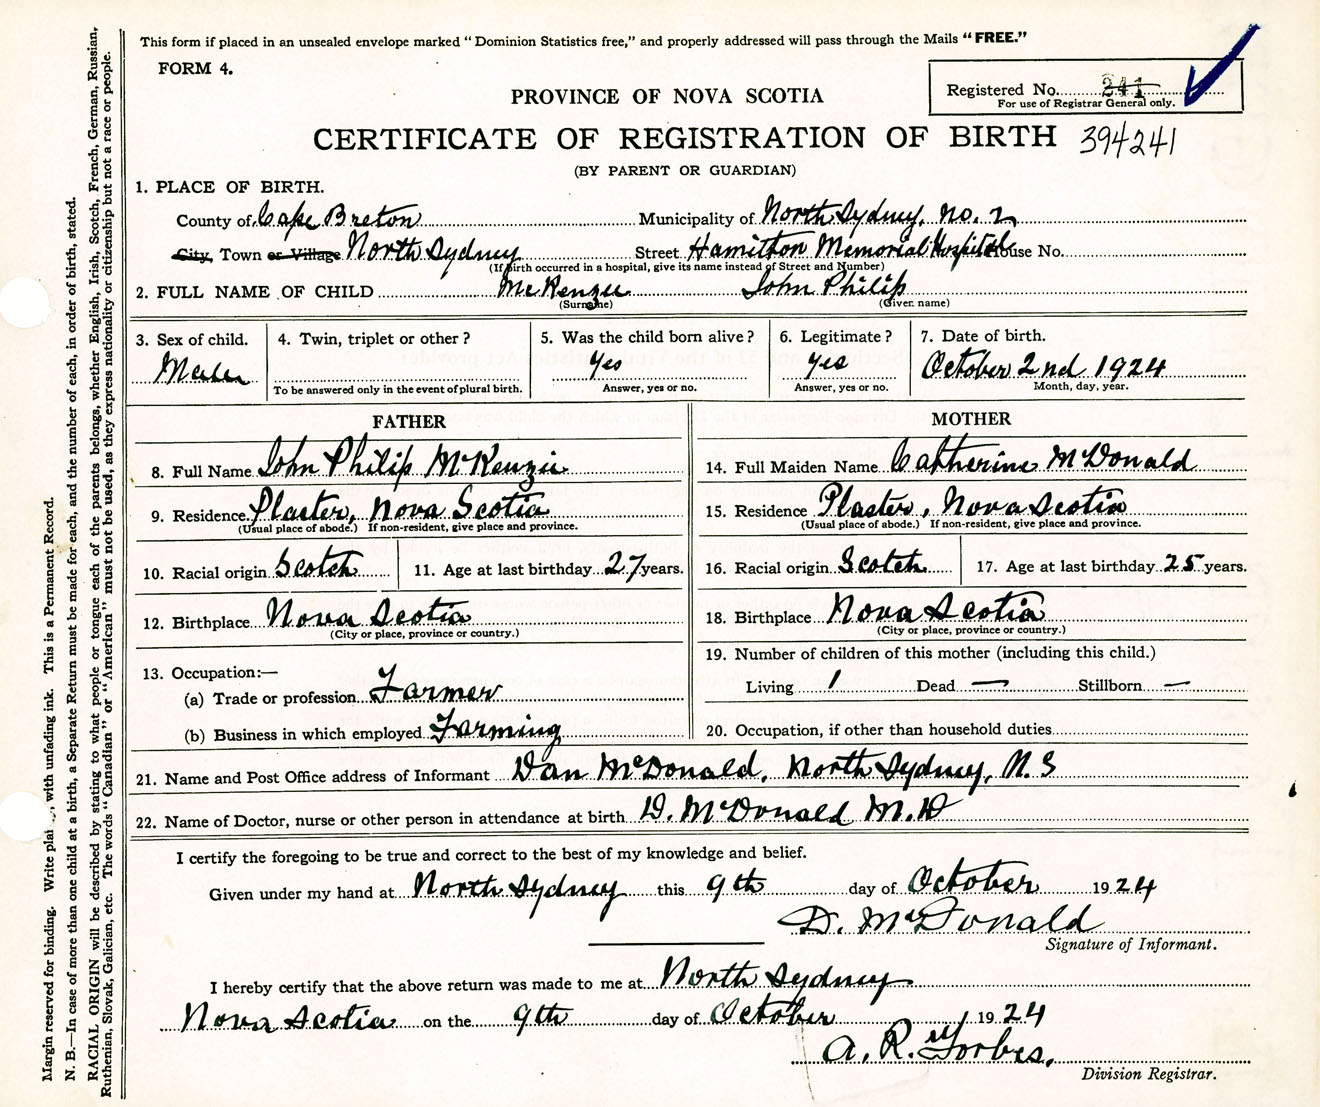 This form if placed in an unsealed envelope marked "Dominion Statistics free," and properly addressed will pass through the Mails "FREE."
FORM 4.
Registered No. 241
For use of Registrar General only.
PROVINCE OF NOVA SCOTIA
CERTIFICATE OF REGISTRATION OF BIRTH 394241
(BY PARENT OR GUARDIAN)
1. PLACE OF BIRTH.
County of Cape Breton Municipality of North Sydney, no. 2
City, Town or Village North Sydney Street Hamilton Memorial Hospital House No.
(If birth occurred in a hospital, give its name instead of Street and Number)
2. FULL NAME OF CHILD McKenzie John Philip
(Surname) (Given name)
3. Sex of child. 4. Twin, triplet or other? 5. Was the child born alive? 6. Legitimate? 7. Date of birth.
Male Yes Yes October 2nd 1924
To be answered only in the event of plural birth. Answer, yes or no. Answer, yes or no. Month, day, year.
FATHER MOTHER
8. Full Name John Philip McKenzie 14. Full Maiden Name Catherine McDonald
9. Residence Plaster, Nova Scotia 15. Residence Plaster, Nova Scotia
(Usual place of abode.) If non-resident, give place and province. (Usual place of abode.) If non-resident, give place and province.
10. Racial origin Scotch 11. Age at last birthday 27 years. 16. Racial origin Scotch 17. Age at last birthday 25 years.
12. Birthplace Nova Scotia 18. Birthplace Nova Scotia
(City or place, province or country.) (City or place, province or country.)
13. Occupation:— 19. Number of children of this mother (including this child.)
(a) Trade or profession Farmer Living 1 Dead — Stillborn —
(b) Business in which employed Farming 20. Occupation, if other than household duties
21. Name and Post Office address of Informant Dan McDonald, North Sydney, N.S
22. Name of Doctor, nurse or other person in attendance at birth D. McDonald M.D
I certify the foregoing to be true and correct to the best of my knowledge and belief.
Given under my hand at North Sydney this 9th day of October 1924
D. McDonald
Signature of Informant.
I hereby certify that the above return was made to me at North Sydney
Nova Scotia on the 9th day of October 1924
A. R. Forbes.
Division Registrar.
Margin reserved for binding. Write plai with unfading ink. This is a Permanent Record.
N. B.—In case of more than one child at a birth, a Separate Return must be made for each, and the number of each, in order of birth, stated.
RACIAL ORIGIN will be described by stating to what people or tongue each of the parents belongs, whether English, Irish, Scotch, French, German, Russian,
Ruthenian, Slovak, Galician, etc. The words "Canadian" or "American" must not be used, as they express nationality or citizenship but not a race or people.